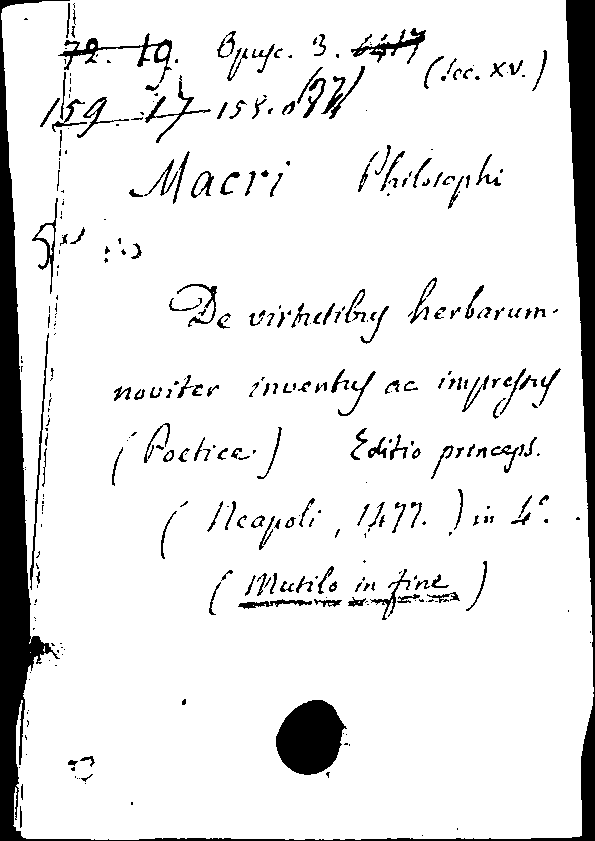 72. 19. Opusc. 3.
(Sec. XV.)
159 17 158.
Macri Philosophi
De virtutibus herbarum
noviter inventus ac impressus
(Poetice.) Editio princeps.
(Neapoli, 1477.) in 4°.
(Mutilo in fine)